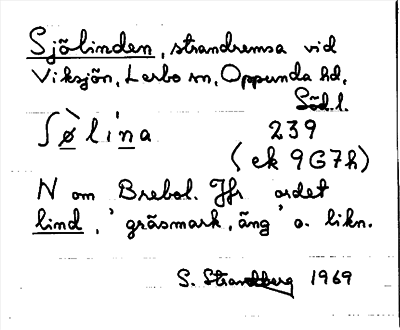 Sjölinden, strandremsa vid
Viksjön, Lerbo sn, Oppunda hd,
Söd.l.
ʃø̀lina 239
(ek 9G7h)
N om Brebol. Jfr ordet
lind, 'gräsmark, äng' o. likn.
S. Strandberg 1969